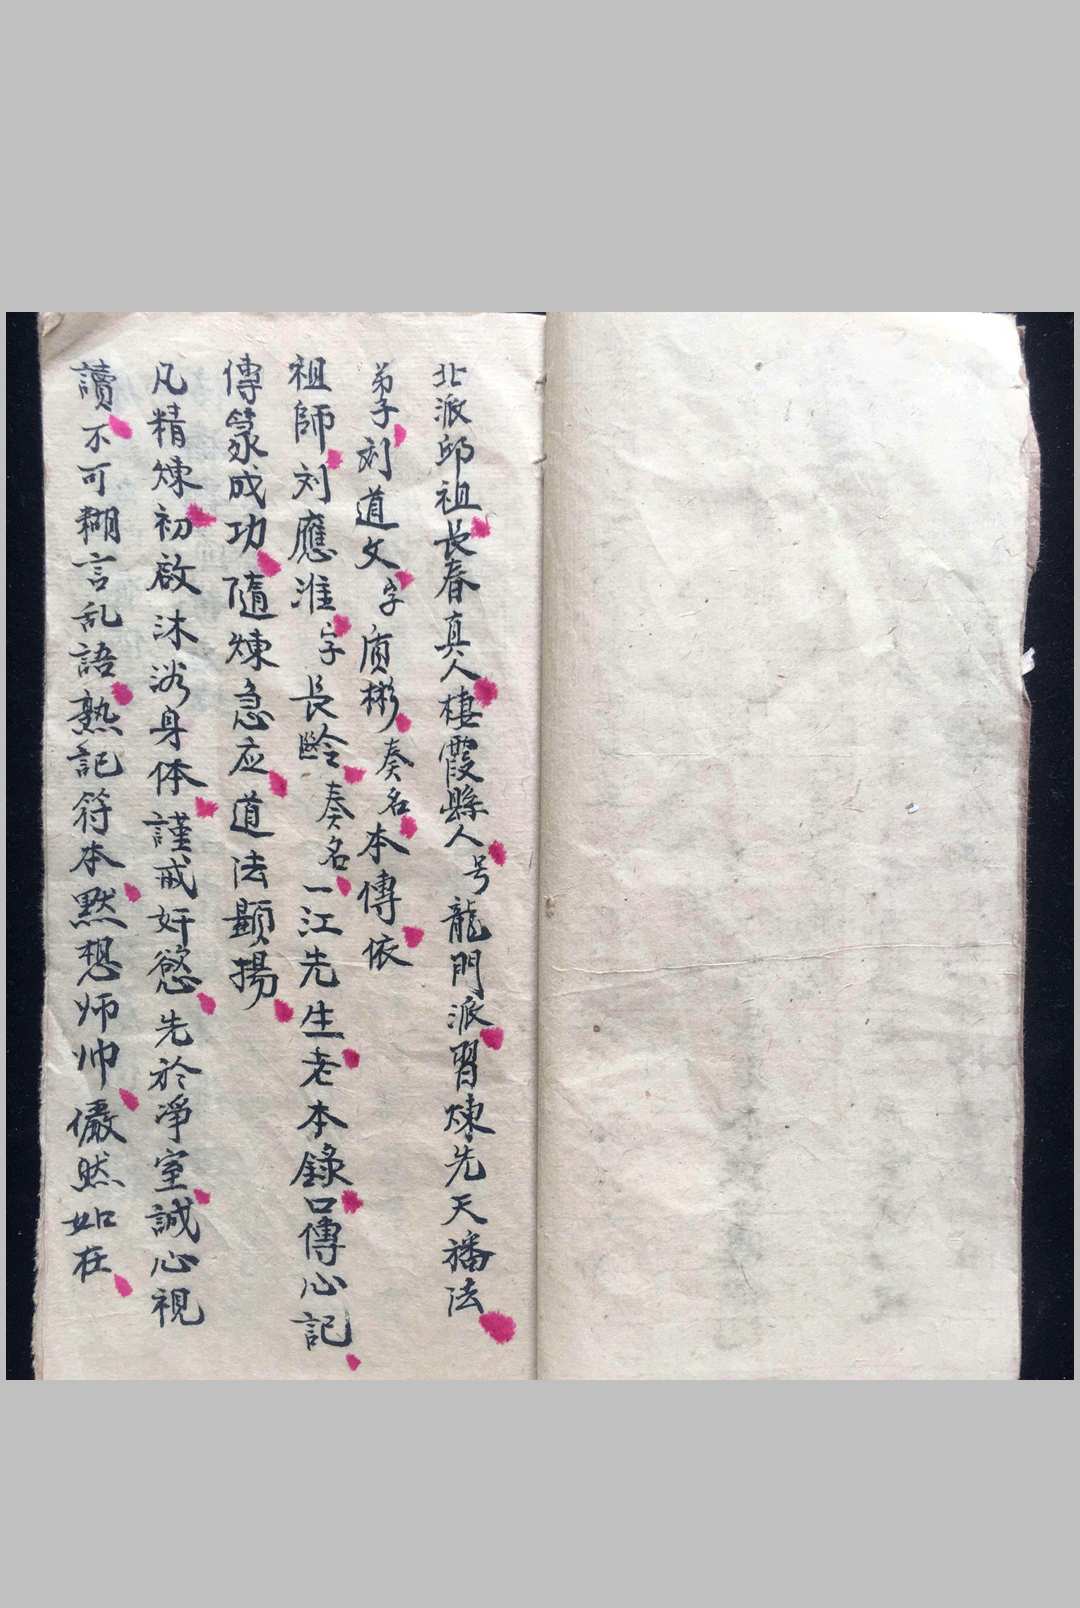 北派邱祖長春真人棲霞縣人号龍門派習煉先天旛法
弟子刘道文字质彬奏名本傳依
祖師刘應淮字長齡奏名一江先生老本錄口傳心記
傳篆成功隨煉急应道法顯揚
凡精煉初啟沐浴身体謹戒奸慾先於凈室誠心視
讀不可糊言乱語熟記符本默想师帅儼然如在